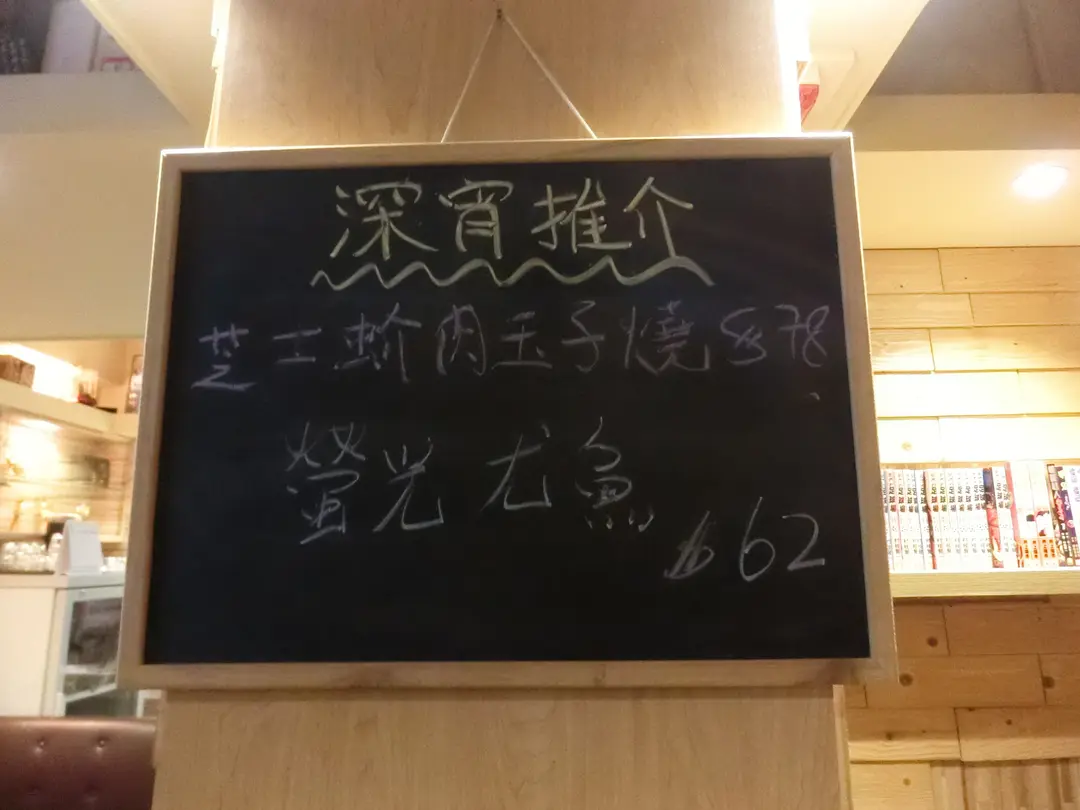 深宵推介
芝士蚧肉玉子燒 $78
螢光尤魚
$62